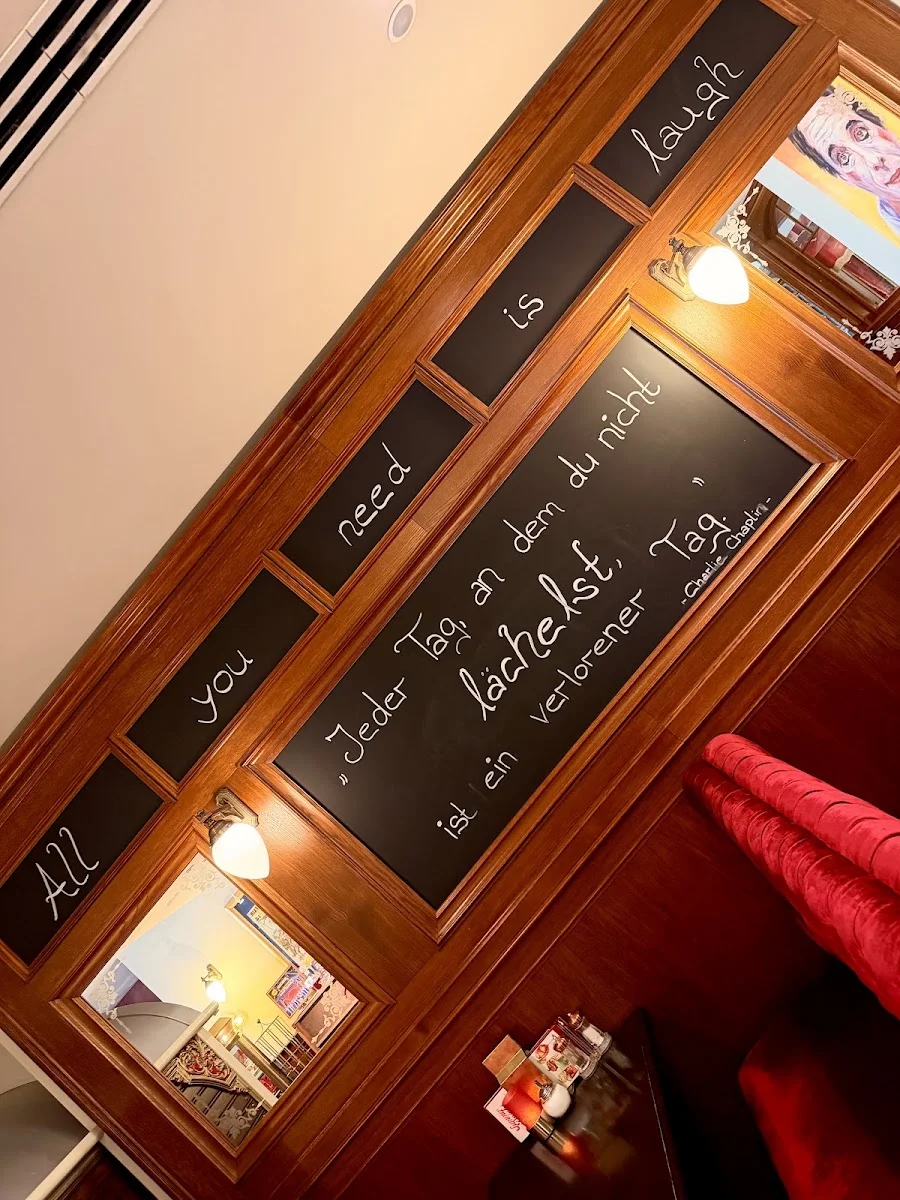 All you need is laugh
„Jeder Tag, an dem du nicht
lächelst,
ist ein verlorener Tag."
-Charlie Chaplin-